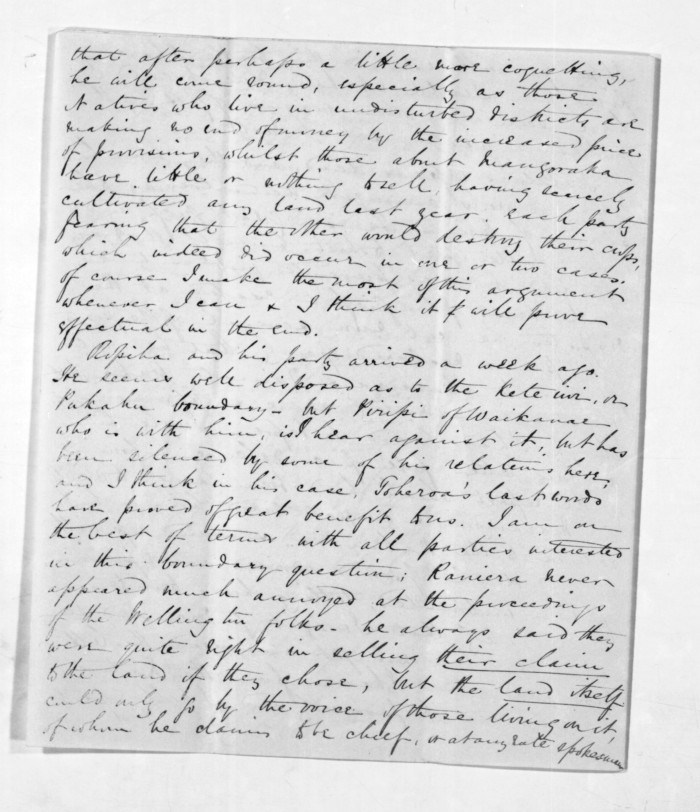 that after perhaps a little more coquetting,
he will come round, especially as those
Natives who live in undisturbed districts are
making no end of money by the increased price
of provisions, whilst those about Mangoraka
have little or nothing to sell, having scarcely
cultivated any land last year. Each party
fearing that the other would destroy their crops,
which indeed did occur in one or two cases.
of course I make the most of this argument
whenever I can & I think it will prove
effectual in the end.
Ropiha and his party arrived a week ago.
He seems well disposed as to the or
Pukahu boundary - but Piripi of Waikanae
who is with him, is I hear against it, but has
been silenced by some of his relations here,
and I think in his case, Toheroa's last words
have proved of great benefit to us. I am on
the best of terms with all parties interested
in this boundary question; Raniera never
appeared much annoyed at the proceedings
of the Wellington folks - he always said they
were quite right in selling their claim
to the land if they chose, but the land itself
could only go by the voice of those living on it,
of whom he claims to be chief, or at any rate spokesman